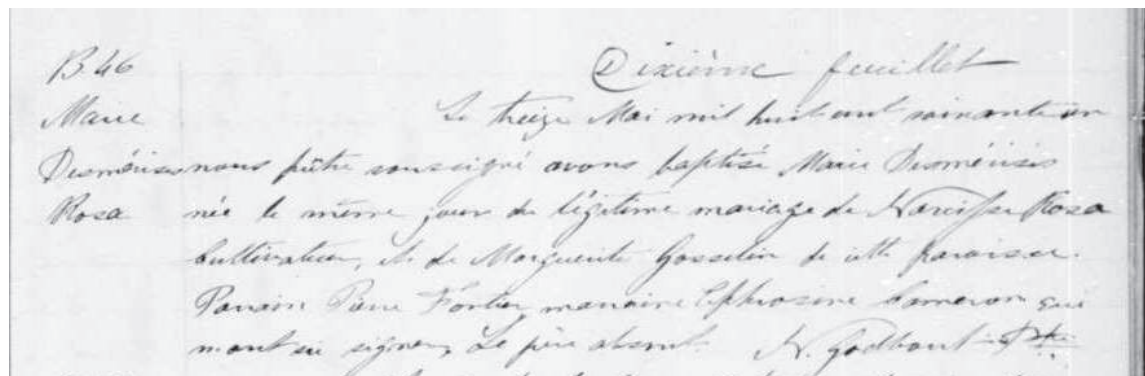 B. 46
Dixième feuillet
Marie
Desmérises
Rosa
Le treize Mai mil huit cent soixante un
nous prêtre soussigné avons baptisé Marie Desmérises
née le même jour du légitime mariage de Narcisse Rosa
Cultivateur, et de Marguerite Gosselin de cette paroisse.
Parrain Pierre Fortier, marraine Euphrosine Cameron qui
n'ont su signer. Le père absent. N. Godbout Ptre